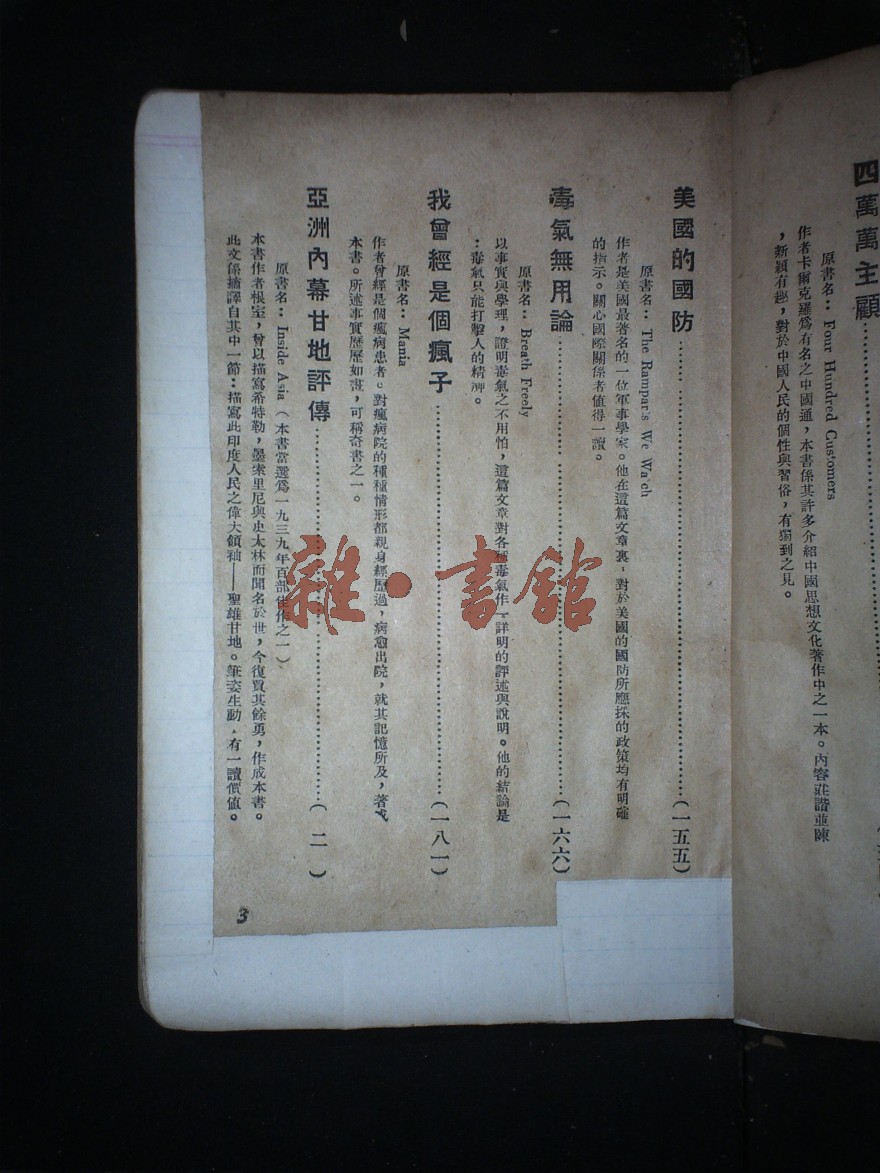 四萬萬主顧
原書名：Four Hundred Cus'omers
作者卡爾克羅爲有名之中國通，本書係其許多介紹中國思想文化著作中之一本。內容莊諧並陳
，新穎有趣，對於中國人民的個性與習俗，有獨到之見。
美國的國防（一五五）
原書名：The Rampar's We Wa'ch
作者是美國最著名的一位軍事學家。他在這篇文章裏，對於美國的國防所應採的政策均有明確
的指示。關心國際關係者值得一讀。
毒氣無用論（一六六）
原書名：Breath Freely
以事實與學理，證明毒氣之不用怕，這篇文章對各種毒氣作一詳明的評述與說明。他的結論是
：毒氣只能打擊人的精神。
我曾經是個瘋子（一八一）
原書名：Mania
作者曾經是個瘋病患者。對瘋病院的種種情形都親身經歷過，病愈出院，就其記憶所及，著成
本書。所述事實歷歷如畫，可稱奇書之一。
亞洲內幕甘地評傳（二）
原書名：Inside Asia（本書當選爲一九三九年百部佳作之一）
本書作者根室，曾以描寫希特勒，墨索里尼與史太林而聞名於世，今復賈其餘勇，作成本書。
此文係摘譯自其中一節：描寫此印度人民之偉大領袖——聖雄甘地。筆姿生動，有一讀價值。
3
雜·書館